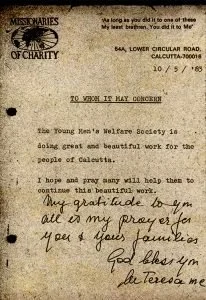 MISSIONARIES
OF CHARITY
"As long as you did it to one of these
My least brethren. You did it to Me"
54A, LOWER CIRCULAR ROAD,
CALCUTTA-700016
10/5/'83
TO WHOM IT MAY CONCERN
The Young Men's Welfare Society is
doing great and beautiful work for the
people of Calcutta.
I hope and pray many will help them to
continue this beautiful work.
My gratitude to you
all is my prayer for
you & your families
God bless you
M Teresa mc